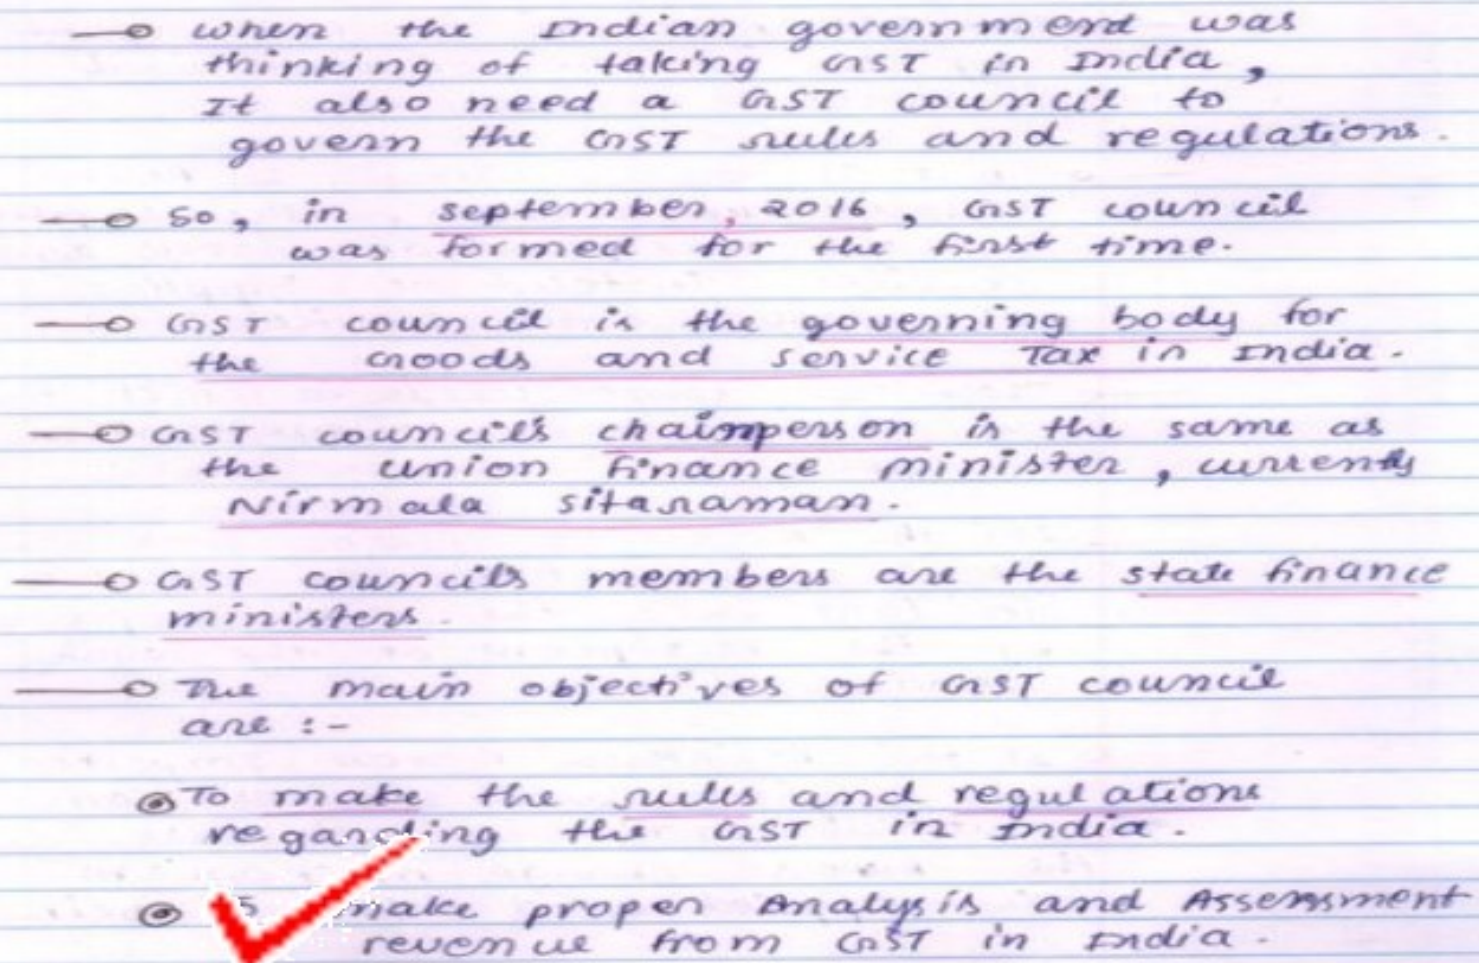 when the Indian government was
thinking of taking GST in India,
It also need a GST council to
govern the GST rules and regulations.
So, in september, 2016, GST council
was formed for the first time.
GST council is the governing body for
the Goods and service Tax in India.
GST council's chairperson is the same as
the union finance minister, currently
Nirmala sitaraman.
GST councils members are the state finance
ministers.
The main objectives of GST council
are :-
To make the rules and regulations
regarding the GST in India.
make proper Analysis and Assessment
revenue from GST in India.